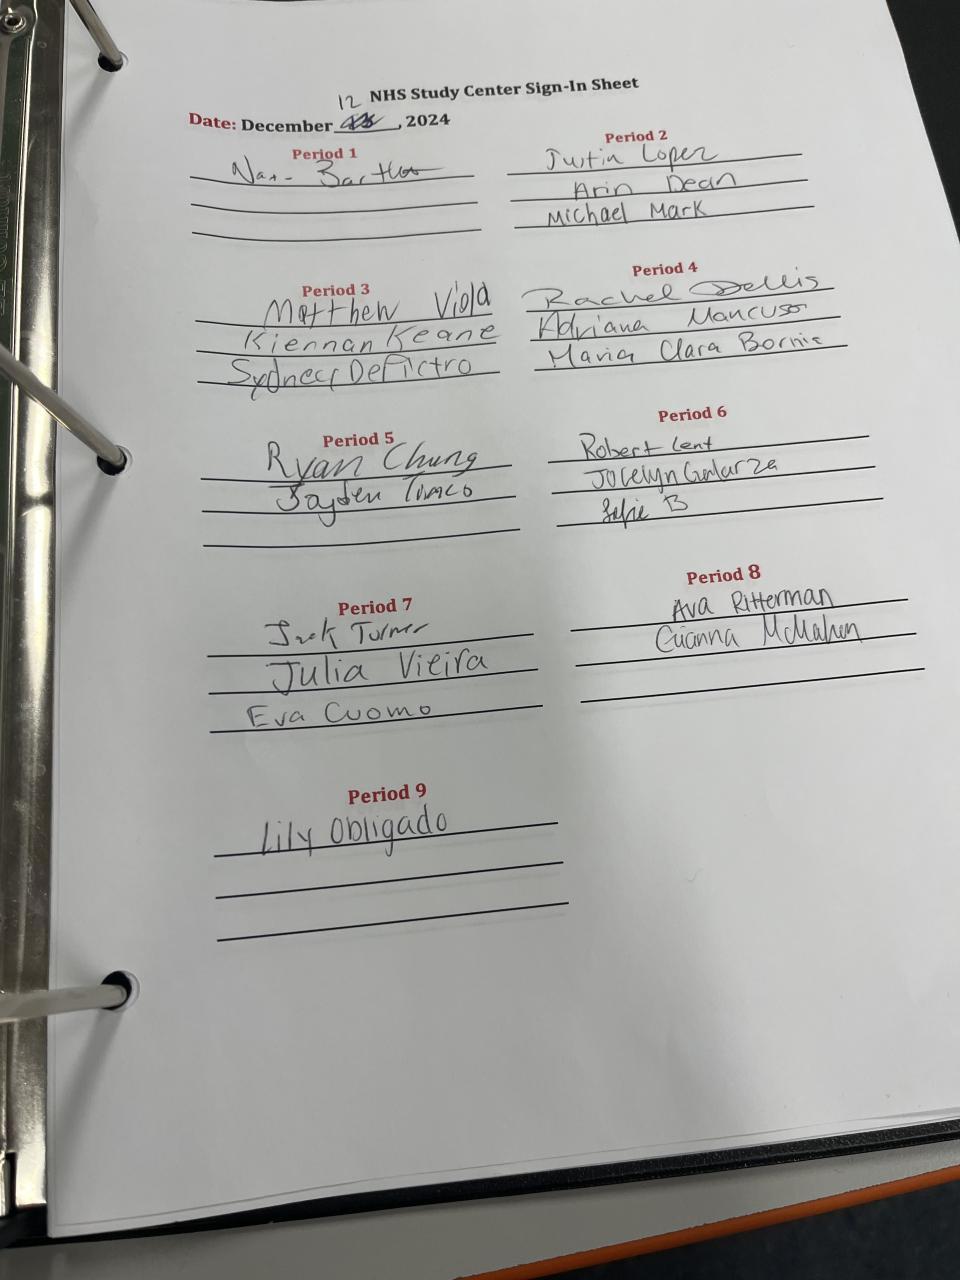 NHS Study Center Sign-In Sheet
12
Date: December , 2024
Period 1
Period 2
Justin Lopez
Arin Dean
Michael Mark
Period 3
Matthew Viola
Kiernan Keane
Sydney DePietro
Period 4
Rachel Dellis
Adriana Mancuso
Maria Clara
Period 5
Ryan Chung
Jayden
Period 6
Robert Lent
Jocelyn Galarza
B
Period 7
Jack Turner
Julia Vieira
Eva Cuomo
Period 8
Ava Ritterman
Gianna McMahon
Period 9
Lily Obligado